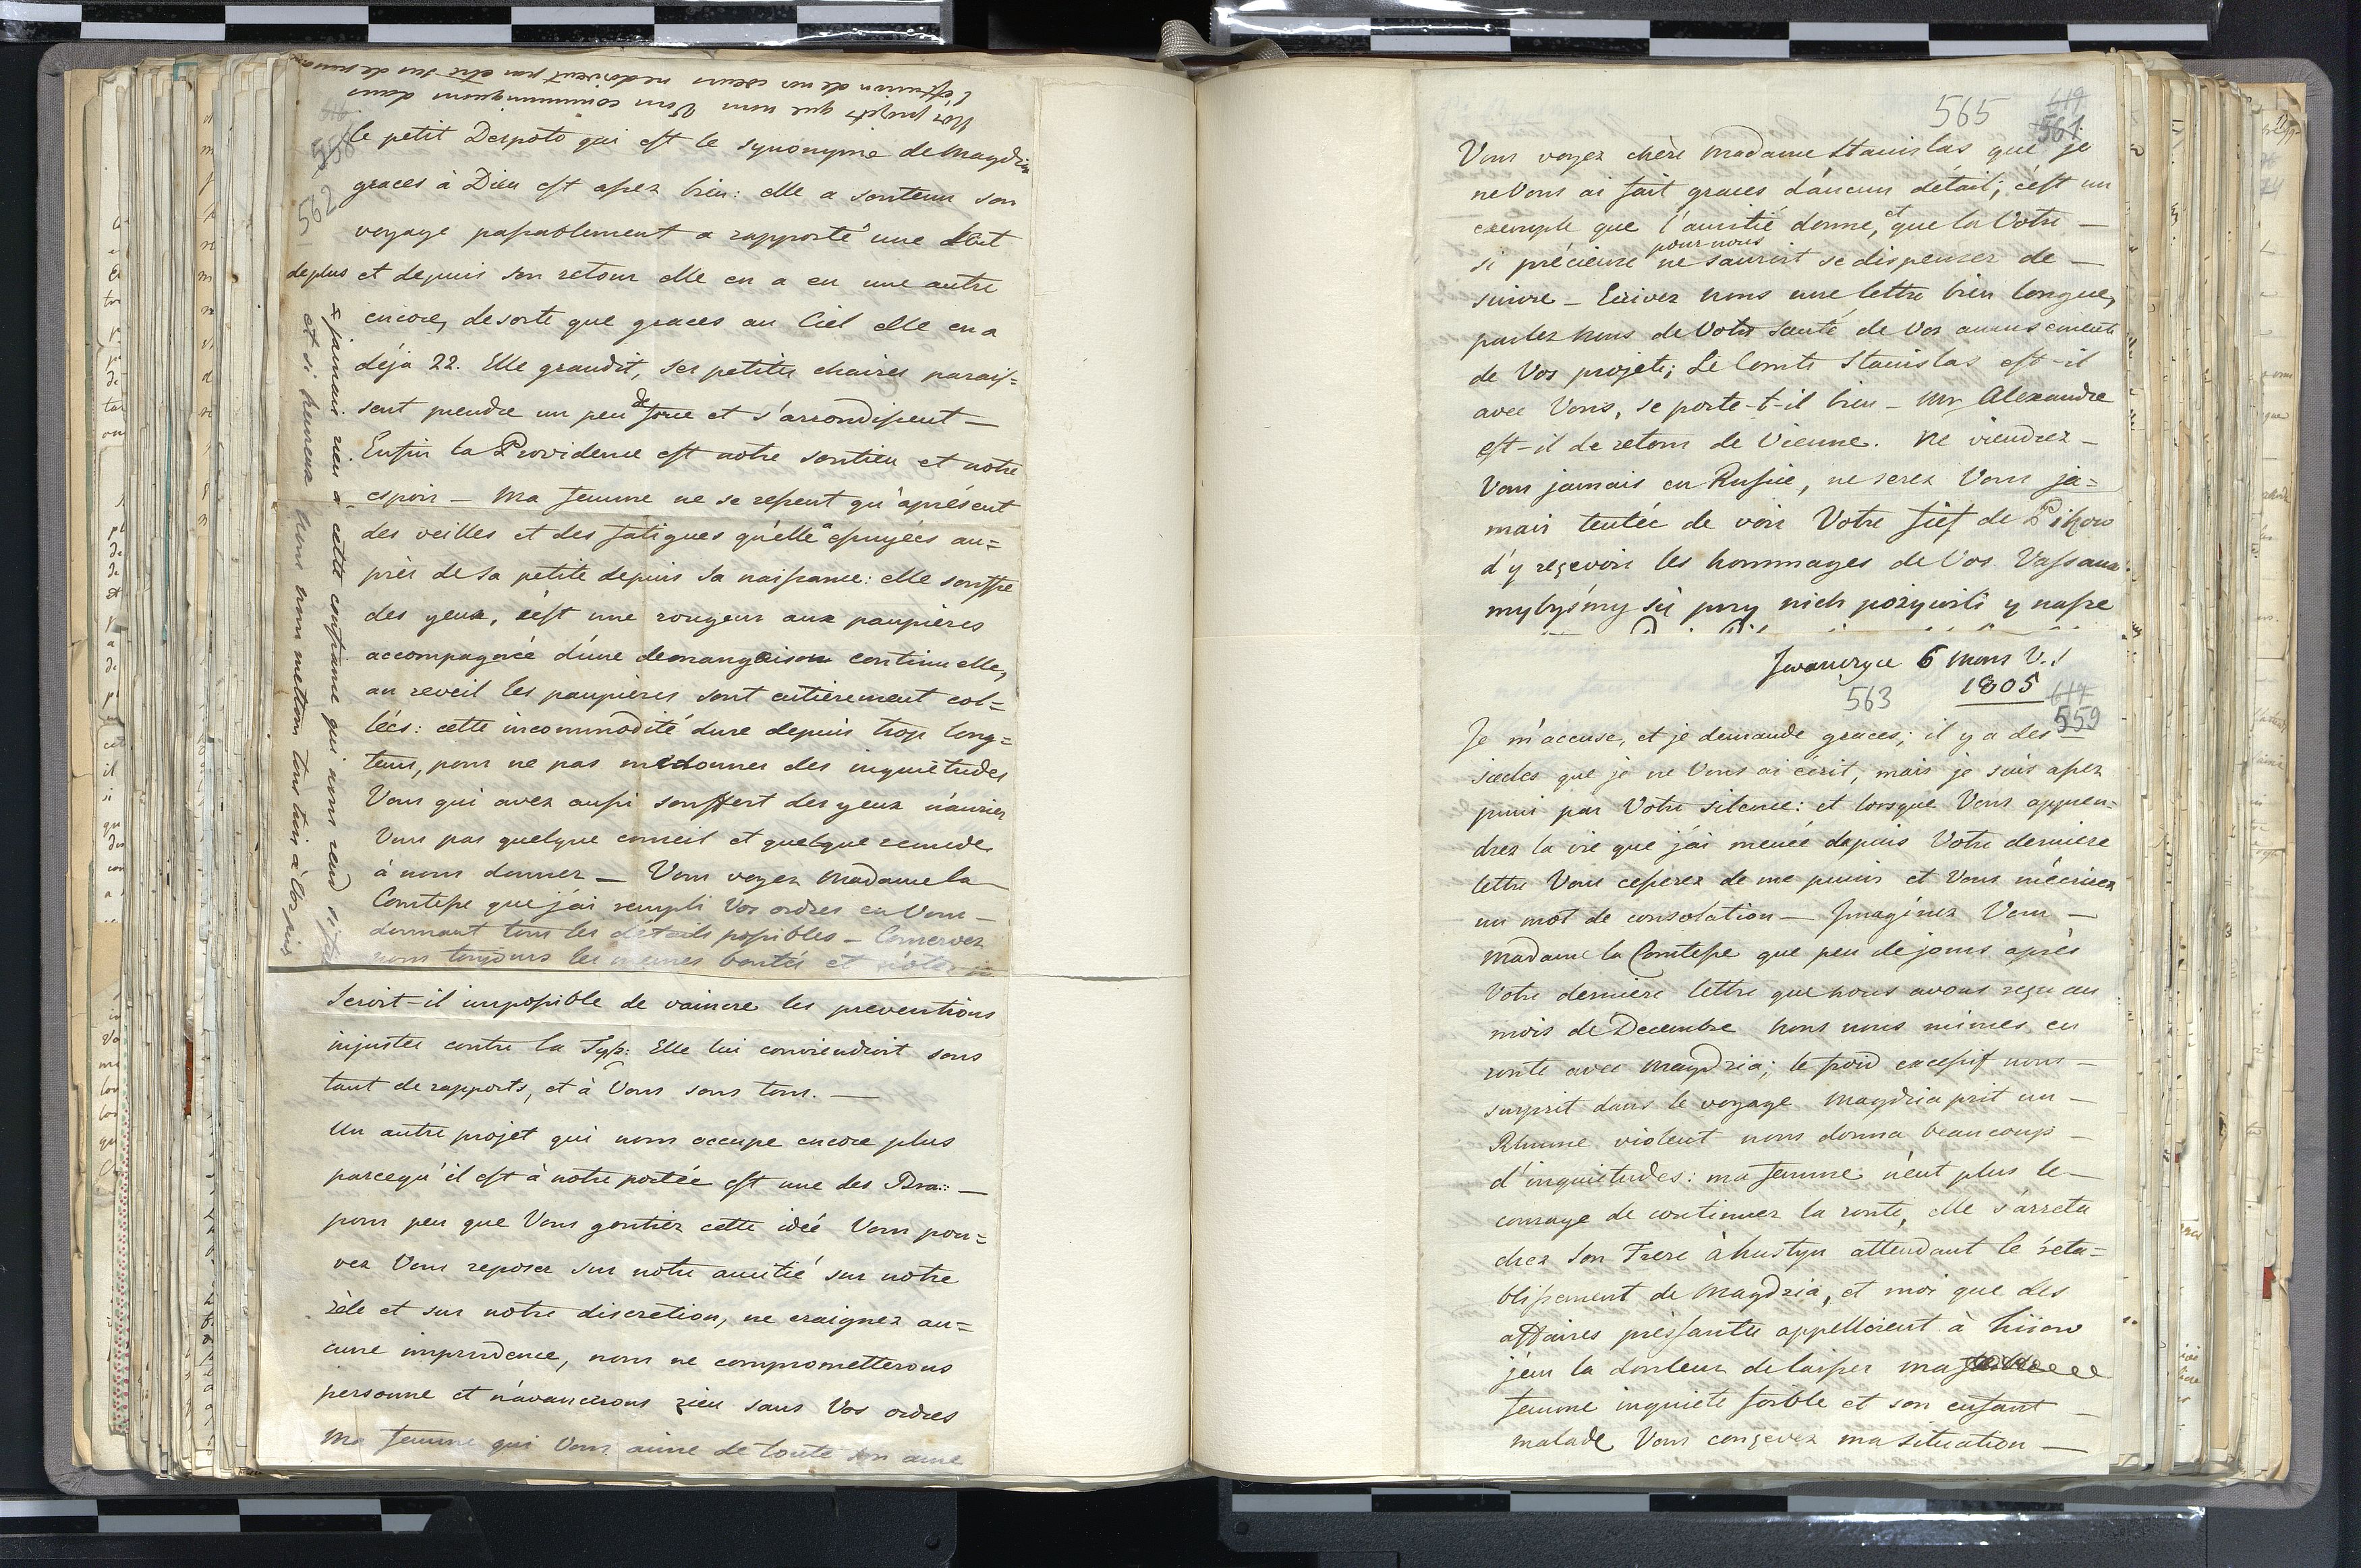 Nos projets que nous Vous communiquons dans
l'effusion de nos cœurs ne doivent pas etre sus de
616
558
562
le petit Despote qui est le synonyme de Magdzia
graces à Dieu est assez bien: elle a soutenu son
voyage passablement a rapporté une dent
de plus et depuis son retour elle en a eu une autre
encore, desorte que graces au Ciel elle en a
déja 22. Elle grandit, ses petites chaires parais=
sent prendre un peu de force et s'arrondissent —
Enfin la Providence est notre soutien et notre
espoir — Ma femme ne se resent qu'aprésent
des veilles et des fatigues qu'elle a essuyées au=
près de sa petite depuis sa naissance: elle souffre
des yeux, c'est une rougeur aux paupières
accompagnée d'une demangeaison continuelle,
au reveil les paupières sont entièrement col=
lées: cette incommodité dure depuis trop long=
tems, pour ne pas me donner des inquiétudes
Vous qui avez aussi souffert des yeux n'auriez
Vous pas quelque conseil et quelque remede
à nous donner — Vous voyez Madame la
Comtesse que j'ai rempli Vos ordres en Vous —
donnant tous les détails possibles — Conservez
nous toujours les memes bontés et n'otez
x jamais rien à cette confiance qui nous rend si
et si heureux nous nous mettons tous trois à Vos pieds
Seroit-il impossible de vaincre les preventions
injustes contre la Tysz: Elle lui conviendroit sous
tant de rapports, et à Vous sous tous. —
Un autre projet qui nous occupe encore plus
parcequ'il est à notre portée est une des Bra:: —
pour peu que Vous goutiez cette idée Vous pou=
vez Vous reposer sur notre amitié sur notre
zèle et sur notre discretion, ne craignez au=
cune imprudence, nous ne comprometterons
personne et n'avancerons rien sans Vos ordres
Ma femme qui Vous aime de toute son ame
565
619
561
Vous voyez chère Madame Stanislas que je
ne Vous ai fait graces d'aucun detail; c'est un
exemple que l'amitié donne, et que la Votre —
si précieuse pour nous ne sauroit se dispenser de —
suivre — Ecrivez nous une lettre bien longue,
parlez nous de Votre santé de Vos amusements
de Vos projets; Le Comte Stanislas est-il
avec Vous, se porte-t-il bien — Mr Alexandre
est-il de retour de Vienne. Ne viendrez —
Vous jamais en Russie, ne serez Vous ja=
mais tentée de voir Votre fief de Pikow
d'y reçevoir les hommages de Vos Vassaux.
mybyśmy się przy nich pożywili y nasze
Iwanczyce 6 Mars V.S
1805
563
617
559
Je m'accuse, et je demande graces; il y a des
siecles que je ne Vous ai écrit, mais je suis assez
puni par Votre silence: et lorsque Vous appren=
drez la vie que j'ai menée depuis Votre derniere
lettre Vous cesserez de me punir et Vous m'écrirez
un mot de consolation — Imaginez Vous —
Madame la Comtesse que peu de jours après
Votre derniere lettre que nous avons reçu au
mois de Decembre nous nous mimes en
route avec Magdzia; le froid excessif nous —
surprit dans le voyage Magdzia prit un —
Rhume violent nous donna beaucoup —
d'inquietudes: ma femme n'eut plus le —
courage de continuer la route, elle s'arreta
chez son Frere à hustyn attendant le reta=
blissement de Magdzia, et moi que des
affaires pressantes appelloient à Kiiow
j'eu la douleur de laisser ma
femme inquiete foible et son enfant —
malade Vous conçevez ma situation —